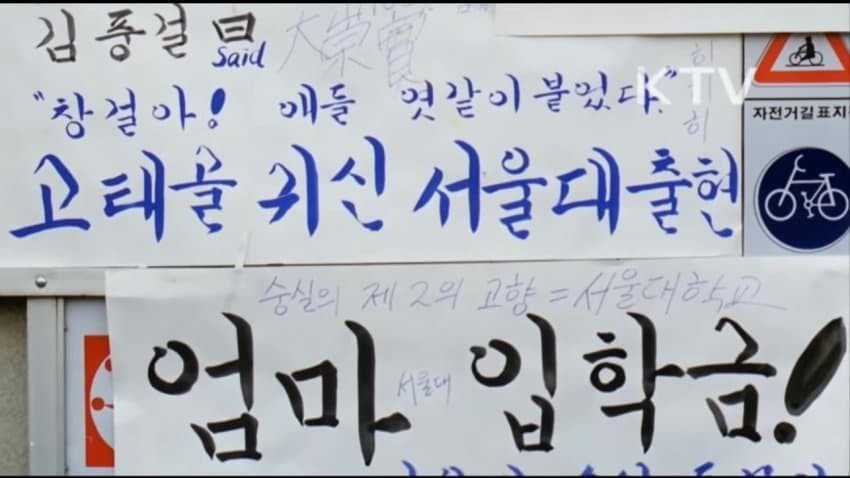 김종걸 曰
Said
大崇賞
"창걸아! 애들 엿같이 붙었다."
히히히
고태골 귀신 서울대출현
KTV
자전거길표지
숭실의 제2의 고향 = 서울대학교
엄마 입학금!
서울대